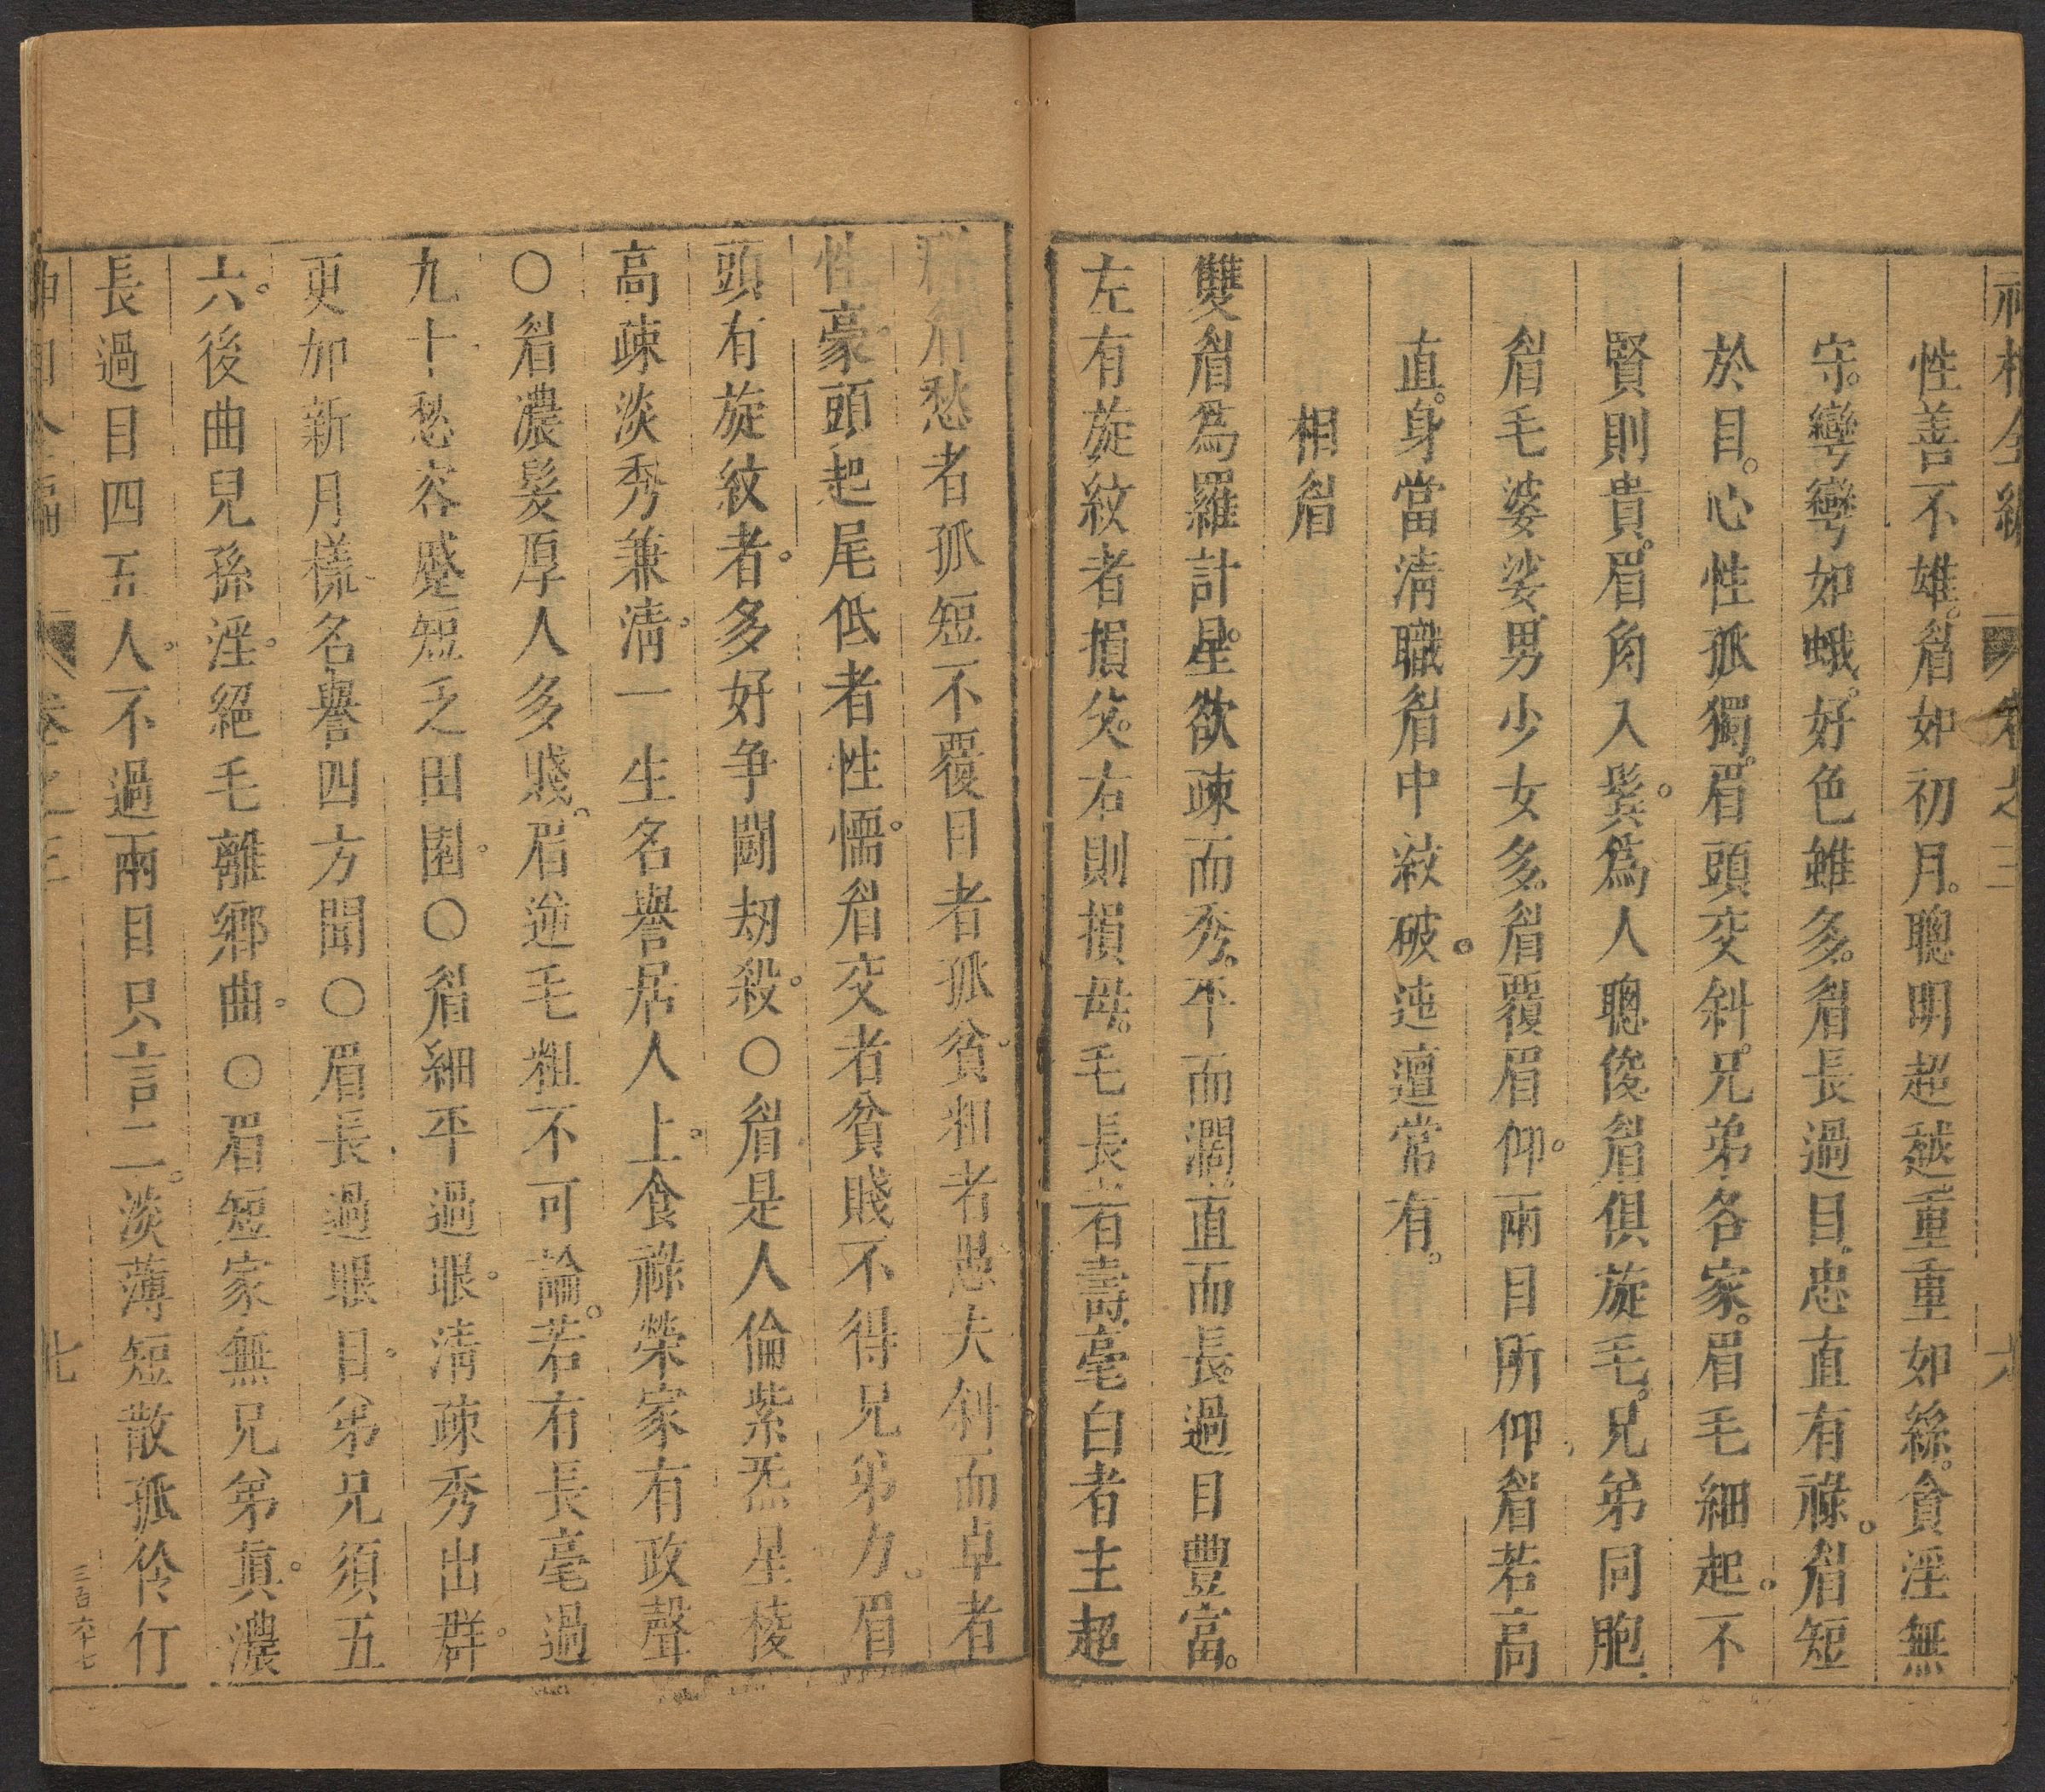 神相全編 卷之三 六
性善不雄。眉如初月。聰明超越。重重如絲。貪淫無
守。彎彎如蛾。好色雖多。眉長過目。忠直有祿。眉短
於目。心性孤獨。眉頭交斜。兄弟各家。眉毛細起。不
賢則貴。眉角入鬢。為人聰俊。眉俱旋毛。兄弟同胞.
眉毛婆娑。男少女多。眉覆眉仰。兩目所仰。眉若高
直。身當清職。眉中紋破。迍邅常有。
相眉
雙眉爲羅計星。欲疎而秀。平而濶。直而長。過目豐富。
左有旋紋者損父。右則損母。毛長者壽。毫白者主超
群。眉愁者孤短不覆目者孤貧。粗者愚夫斜而卓者
性豪。頭起尾低者性懦。眉交者貧賤不得兄弟力。眉
頭有旋紋者。多好爭鬪刼殺。○眉是人倫紫炁星稜
高疎淡秀兼清。一生名譽居人上。食祿榮家有政聲
○眉濃髮厚人多賤。眉逆毛粗不可論。若有長毫過
九十愁容蹙短乏田園。○眉細平過眼。清疎秀出群。
更加新月樣。名譽四方聞○眉長過眼目。弟兄須五
六。後曲兒孫淫。絕毛離鄉曲。○眉短家無兄弟真。濃
長過目四五人。不過兩目只言二。淡薄短散孤伶仃
神相全編 卷之三 七
三百六十七